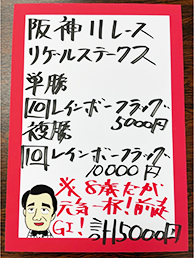 阪神11レース
リゲルステークス
単勝
10レインボーフラッグ
5000円
複勝
10レインボーフラッグ
10000円
※8歳だが
元気一杯!前走
GI!
計15000円